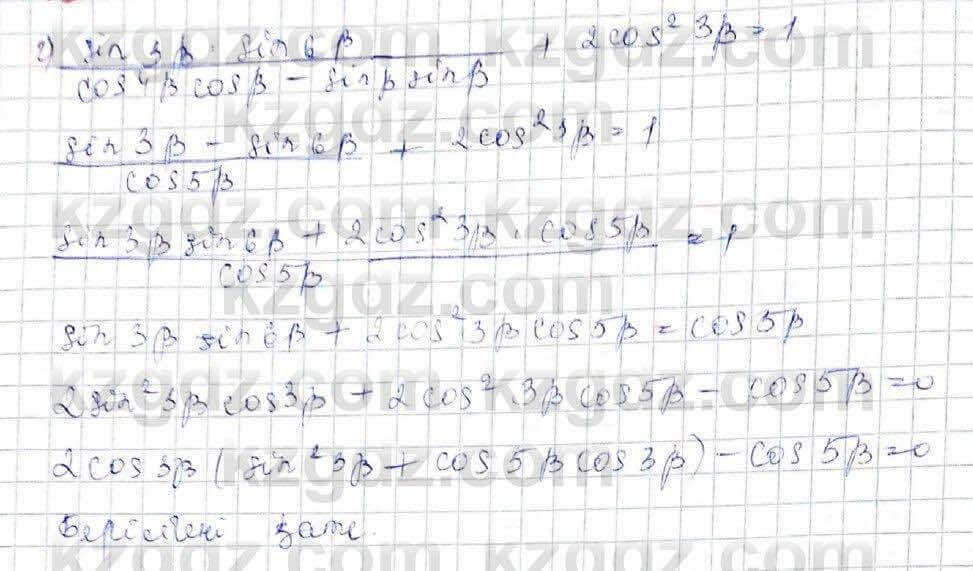 2) sin 3β · sin 6β / cos 4β cosβ − sinβ sinβ + 2cos² 3β = 1
sin 3β − sin 6β / cos 5β + 2cos² 3β = 1
sin 3β sin 6β + 2cos² 3β · cos 5β / cos 5β = 1
sin 3β sin 6β + 2cos² 3β cos 5β = cos 5β
2 sin² 3β cos 3β + 2 cos² 3β cos 5β − cos 5β = 0
2 cos 3β (sin² 3β + cos 5β cos 3β) − cos 5β = 0
Берілгені қате.
kzgdz.com
kzgdz.com
kzgdz.com
kzgdz.com
kzgdz.com
kzgdz.com
kzgdz.com
kzgdz.com